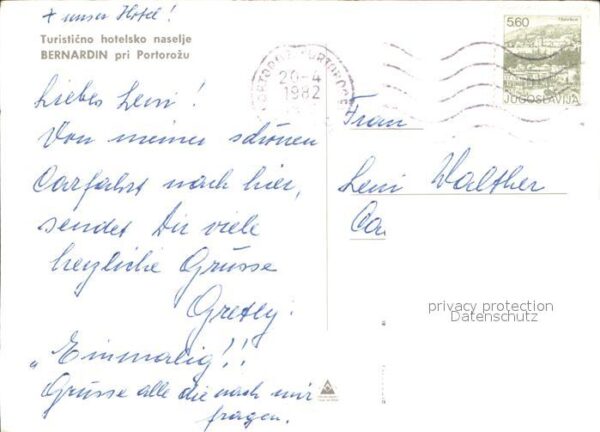 + unser Hotel!
Turistično hotelsko naselje
BERNARDIN pri Portorožu
Liebes Leni!
Von meiner schönen
Carfahrt nach hier,
sendet Dir viele
herzliche Grüsse
Gretly.
"Einmalig!!
Grüsse alle die nach mir
fragen.
PORTOROŽ PORTOROSE
20-4
1982
5.60
JUGOSLAVIJA
Frau
Leni Walther
Ca.
privacy protection
Datenschutz